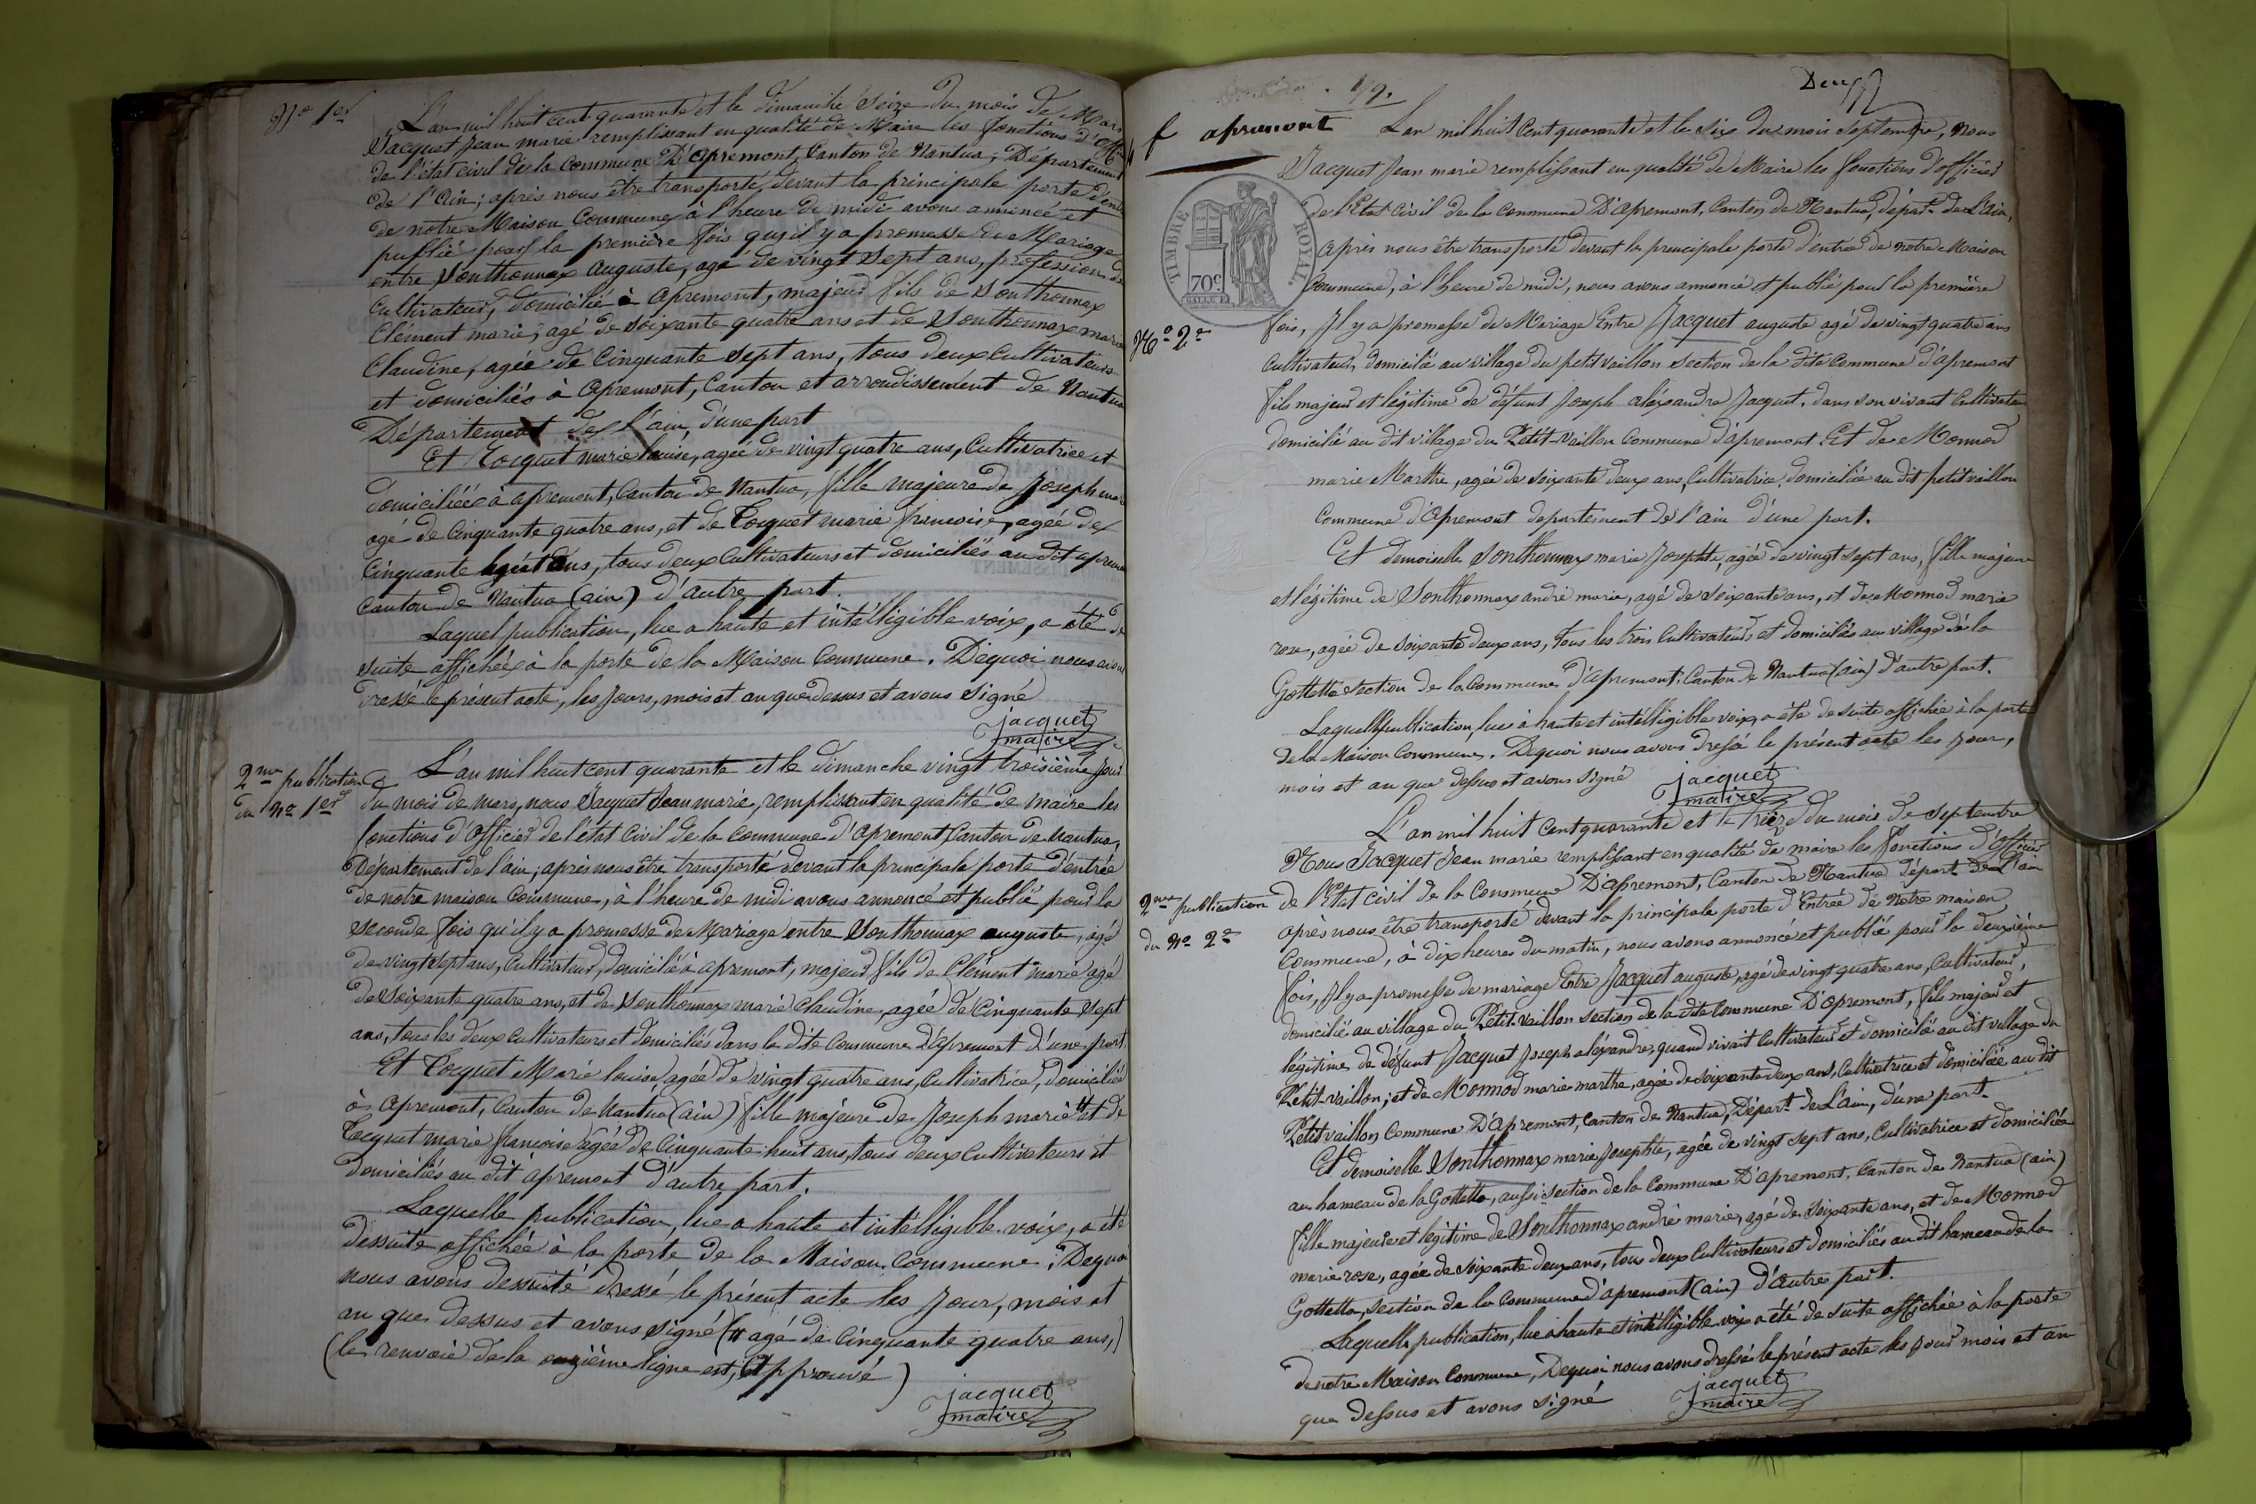 No 1er
L'an mil huit cent quarante et le dimanche seize du mois de Mars
Jacquet Jean marie remplissant en qualité de Maire les fonctions d'
de l'état civil de la Commune D'apremont, Canton de Nantua, Département
de l'Ain; après nous être transporté devant la principale porte d'
de notre Maison Commune à l'heure de midi avons annoncé et
publié pour la première fois qu'il y a promesse de Mariage
entre Sonthonnax Auguste, agé de vingt sept ans, profession de
Cultivateur, domicilié à Apremont, majeur fils de Sonthonnax
Clément marie, agé de soixante quatre ans et de Sonthonnax marie
Claudine, agée de Cinquante sept ans, tous deux Cultivateurs
et domiciliés à Apremont, Canton et arrondissement de Nantua
Département de l'ain, d'une part
Et Tocquet marie louise, agée de vingt quatre ans, Cultivatrice et
domiciliée à apremont, Canton de Nantua, fille majeure de Joseph
agé de Cinquante quatre ans, et de Tocquet marie françoise, agée de
Cinquante huit ans, tous deux Cultivateurs et domiciliés au dit
Canton de Nantua (ain) d'autre part.
Laquel publication, lue a haute et intélligible voix, a été de
suite affichée à la porte de la Maison Commune. Dequoi nous avons
dressé le présent acte, les Jours, mois et an que dessus et avons signé
jacquet
maire
2me publication
du No 1er
L'an mil huit cent quarante et le dimanche vingt troisième jour
du mois de mars, nous Jacquet Jean marie, remplissant en qualité de maire les
fonctions d'Officier de l'état Civil de la Commune d'Apremont Canton de Nantua,
Département de l'ain; après nous être transporté devant la principale porte d'entrée
de notre maison Commune, à l'heure de midi avons annoncé et publié pour la
seconde fois qu'il y a promesse de Mariage entre Sonthonnax auguste, agé
de vingt sept ans, Cultivateur, domicilié à apremont, majeur fils de Clément marie agé
de soixante quatre ans, et de Sonthonnax marie Claudine, agée de Cinquante sept
ans, tous les deux Cultivateurs et domiciliés dans la dite Commune D'apremont d'une part
Et Tocquet Marie louise agée de vingt quatre ans, Cultivatrice, domiciliée
à Apremont, Canton de Nantua (ain) fille majeure de Joseph marie # et de
Tocquet marie françoise agée de Cinquante huit ans, tous deux Cultivateurs et
domiciliés au dit apremont d'autre part.
Laquelle publication, lue a haute et intélligible voix, a été
dessuite affichée à la porte de la Maison Commune. Dequoi
nous avons dessuite dressé le présent acte les Jour, mois et
an que dessus et avons signé (# agé de Cinquante quatre ans,)
(le renvoie de la onzième ligne est, Approuvé)
jacquet
maire
Deux
f apremont
TIMBRE ROYAL
70c
No 2e
L'an mil huit Cent quarante et le six du mois septembre, nous
Jacquet Jean marie remplissant en qualité de Maire les fonctions d'officier
de l'Etat Civil de la Commune D'Apremont, Canton de Nantua, départ. de L'ain,
Après nous être transporté devant la principale porte d'entrée de notre Maison
Commune, à l'heure de midi, nous avons annoncé et publié pour la première
fois, Il y a promesse de Mariage Entre Jacquet auguste agé de vingt quatre ans
Cultivateur, domicilié au village du petit vaillon section de la dite Commune d'apremont
fils majeur et légitime de défunt Joseph aléxandre Jacquet, dans son vivant Cultivateur
domicilié au dit village du Petit-Vaillon Commune d'apremont. Et de Monnod
marie Marthe, agée de soixante deux ans, Cultivatrice, domiciliée au dit petit vaillon
Commune d'Apremont departement de l'ain d'une part.
Et demoiselle Sonthonnax marie Josephte, agée de vingt sept ans, fille majeure
et légitime de Sonthonnax andré marie, agé de soixante ans, et de Monnod marie
rose, agée de soixante deux ans, tous les trois Cultivateurs et domiciliés au village de la
Gottette section de la Commune d'apremont, Canton de Nantua (ain) d'autre part.
Laquelle publication, lue à haute et intélligible voix, a été de suite affichée à la porte
de la Maison Commune. Dequoi nous avons dressé le présent acte les jour,
mois et an que dessus et avons signé
jacquet
maire
2me publication
du No 2e
L'an mil huit Cent quarante et le du mois de Septembre
Nous Jacquet Jean marie remplissant en qualité de maire les fonctions d'officier
de l'Etat Civil de la Commune D'apremont, Canton de Nantua départ. de L'ain
après nous être transporté devant la principale porte d'Entrée de notre maison
Commune, à dix heures du matin, nous avons annoncé et publié pour la deuxième
fois, Il y a promesse de mariage Entre Jacquet auguste, agé de vingt quatre ans, Cultivateur,
domicilié au village du Petit-Vaillon section de la dite Commune D'apremont, fils majeur et
légitime de défunt Jacquet Joseph aléxandre, quand vivait Cultivateur et domicilié au dit village du
Petit-vaillon; et de Monnod marie marthe, agée de soixante deux ans, Cultivatrice et domiciliée au dit
Petit vaillon Commune D'Apremont, Canton de Nantua, Départ. de L'ain, d'une part.
Et demoiselle Sonthonnax marie Josephte, agée de vingt sept ans, Cultivatrice et domiciliée
au hameau de la Gottette, aussi section de la Commune D'apremont, Canton de Nantua (ain)
fille majeure et légitime de Sonthonnax andré marie, agé de soixante ans, et de Monnod
marie rose, agée de soixante deux ans, tous deux Cultivateurs et domiciliés au dit hameau de la
Gottette, section de la Commune d'apremont (ain) d'autre part.
Laquelle publication, lue a haute et intélligible voix a été de suite affichée à la porte
de notre Maison Commune, Dequoi nous avons dressé le présent acte les jour mois et an
que dessus et avons signé
jacquet
maire